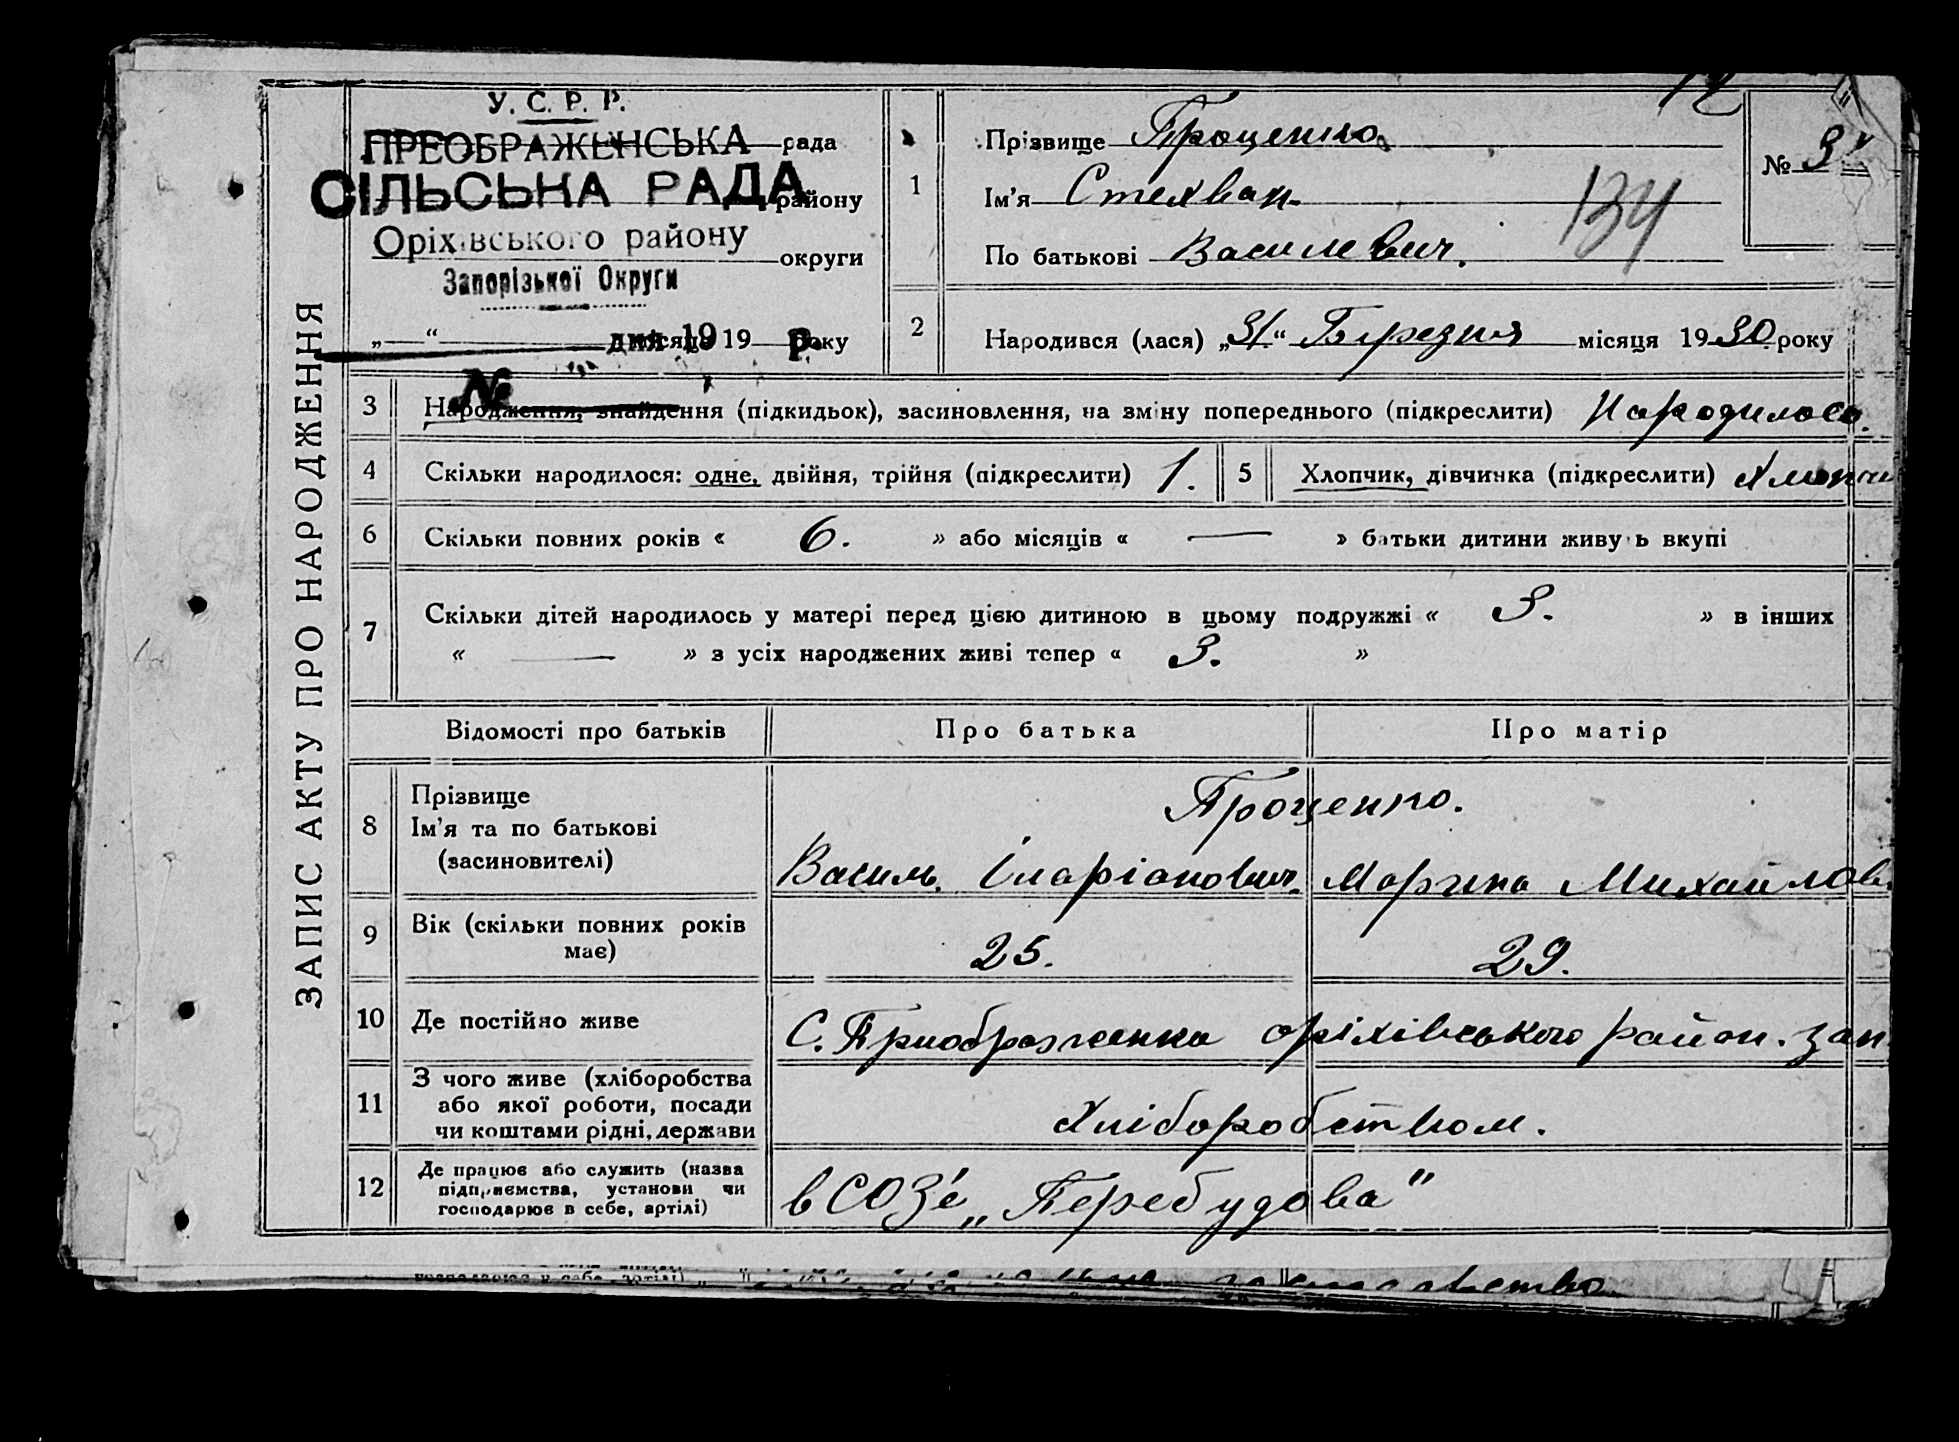 У. С. Р. Р.
ПРЕОБРАЖЕНСЬКА рада
СІЛЬСЬКА РАДА району
Оріхівського району
округи
Запорізької Округи
„ “ дня місяця 19 19 р. року
№
ЗАПИС АКТУ ПРО НАРОДЖЕННЯ
1 Прізвище Проценко
Ім’я Стехван
По батькові Василевич.
№ 3
134
2 Народився (лася) „31“ Березня місяця 1930 року
3 Народження, знайдення (підкидьок), засиновлення, на зміну попереднього (підкреслити) Народилося.
4 Скільки народилося: одне, двійня, трійня (підкреслити) 1.
5 Хлопчик, дівчинка (підкреслити) Хлопчи
6 Скільки повних років « 6. » або місяців « — » батьки дитини живуть вкупі
7 Скільки дітей народилось у матері перед цією дитиною в цьому подружжі « 3. » в інших
« — » з усіх народжених живі тепер « 3. »
Відомості про батьків Про батька Про матір
8 Прізвище
Ім’я та по батькові
(засиновителі)
Проценко.
Василь Іларіанович. Марина Михайлов
9 Вік (скільки повних років
має)
25. 29.
10 Де постійно живе С. Приображенка оріхівського район. Зап
11 З чого живе (хліборобства
або якої роботи, посади
чи коштами рідні, держави
Хліборобством.
12 Де працює або служить (назва
підприємства, установи чи
господарює в себе, артілі)
в СОЗ'е „Перебудова”